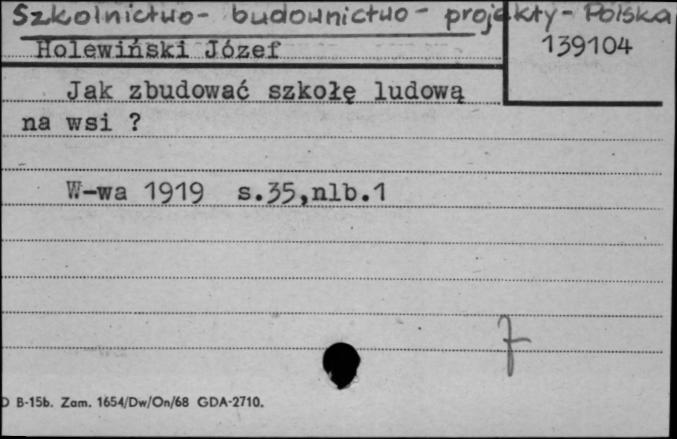 Szkolnictwo - budownictwo - projekty - Polska
Holewiński Józef
139104
Jak zbudować szkołę ludową
na wsi ?
W-wa 1919 s.35,nlb.1
7
D B-15b. Zam. 1654/Dw/On/68 GDA-2710.